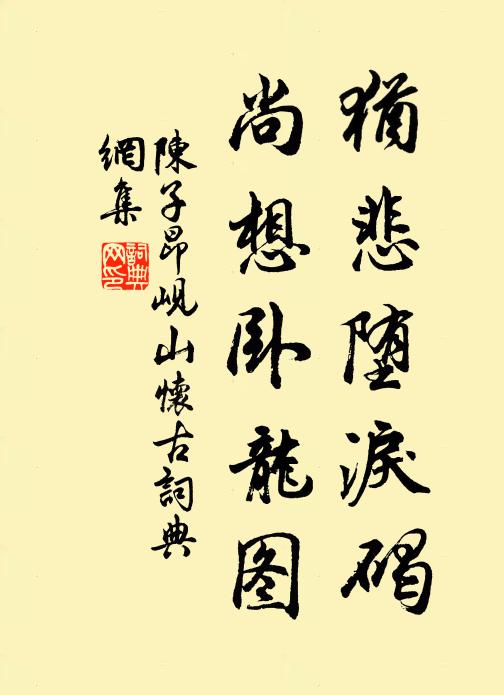 猶悲堕淚碣
尚想卧龍图
陳子昂峴山懷古詞典
網集
詞典
网印